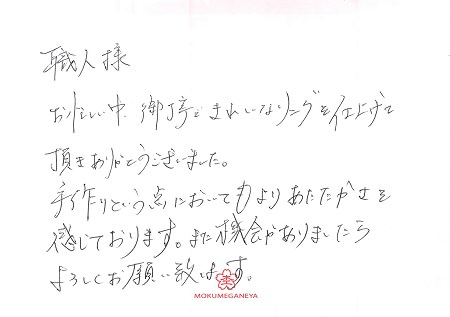 職人様
お忙しい中、御丁寧にきれいなリングを仕上げて
頂きありがとうございました。
手作りという点においてもよりあたたかさを
感じております。また機会がありましたら
よろしくお願い致します。
MOKUMEGANEYA